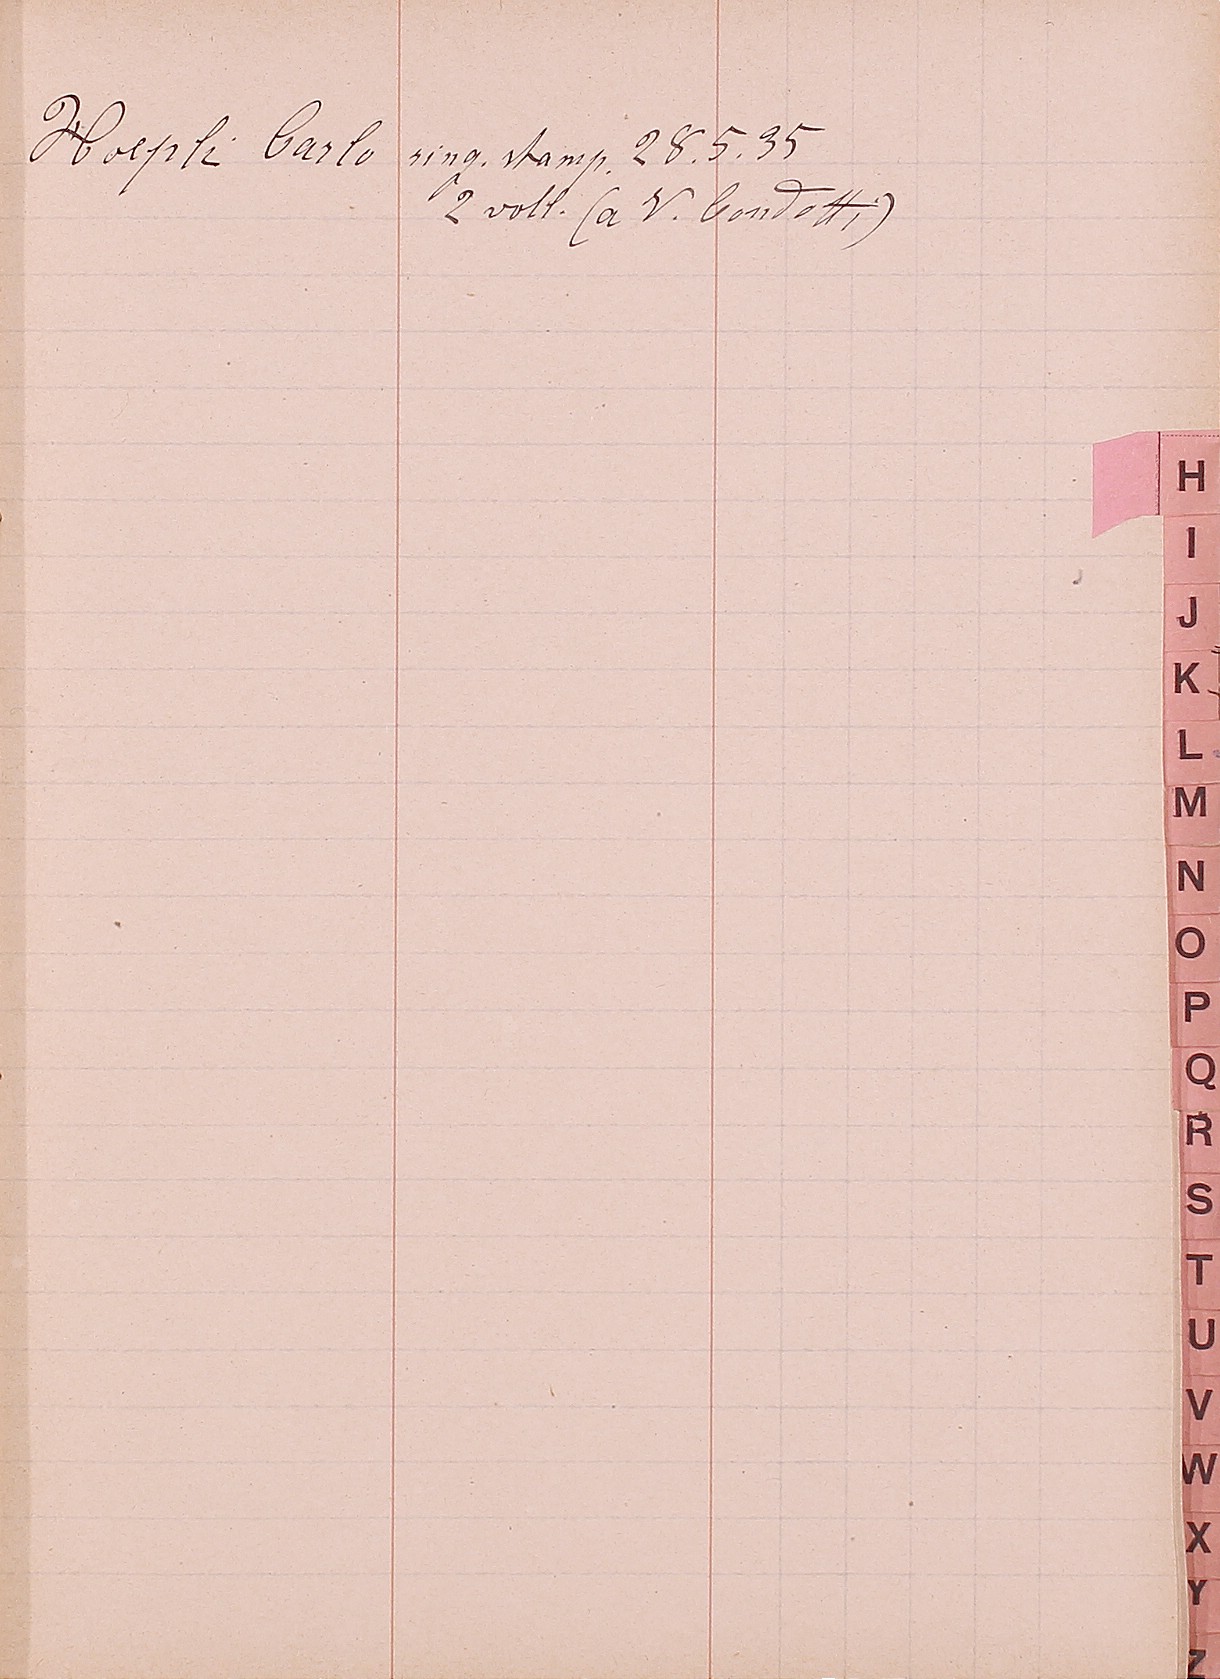 Hoepli Carlo ring. stamp. 28.5.35
2 voll. (a V. Condotti)
H
I
J
K
L
M
N
O
P
Q
R
S
T
U
V
W
X
Y
Z